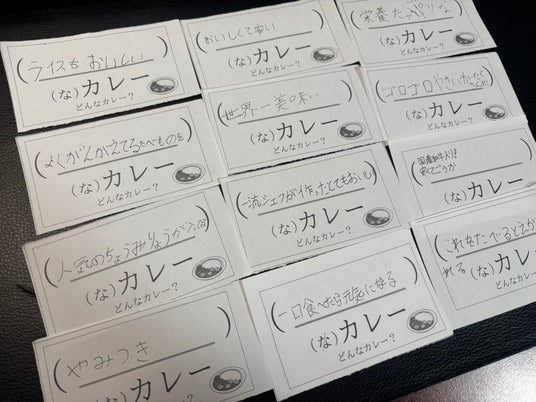 ライスもおいしい
(な)カレー
どんなカレー?
おいしくて安い
(な)カレー
どんなカレー?
栄養たっぷりな
(な)カレー
どんなカレー?
よくかんがえてるたべものを
(な)カレー
どんなカレー?
世界一美味い
(な)カレー
どんなカレー?
ゴロゴロやさいがたくさん
(な)カレー
どんなカレー?
人気のちょうみりょうが
(な)カレー
どんなカレー?
一流シェフが作ったとてもおいしい
(な)カレー
どんなカレー?
国産牛入り!
安くてごうか
(な)カレー
どんなカレー?
やみつき
(な)カレー
一口食べたら元気になる
(な)カレー
どんなカレー?
これをたべるとえが
(な)カレー
どんなカレー?